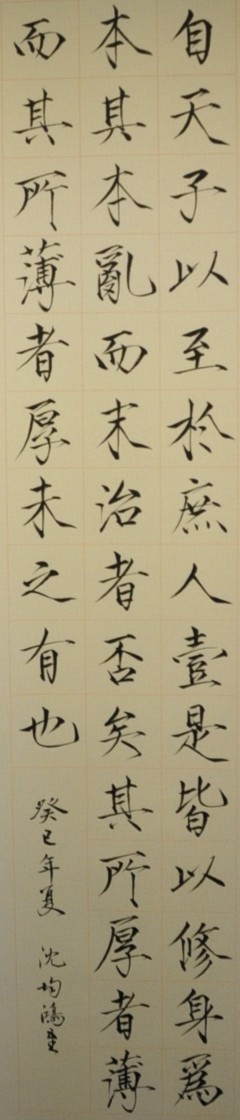 自天子以至於庶人壹是皆以修身為
本其本亂而末治者否矣其所厚者薄
而其所薄者厚未之有也
癸巳年夏 沈均鴻書